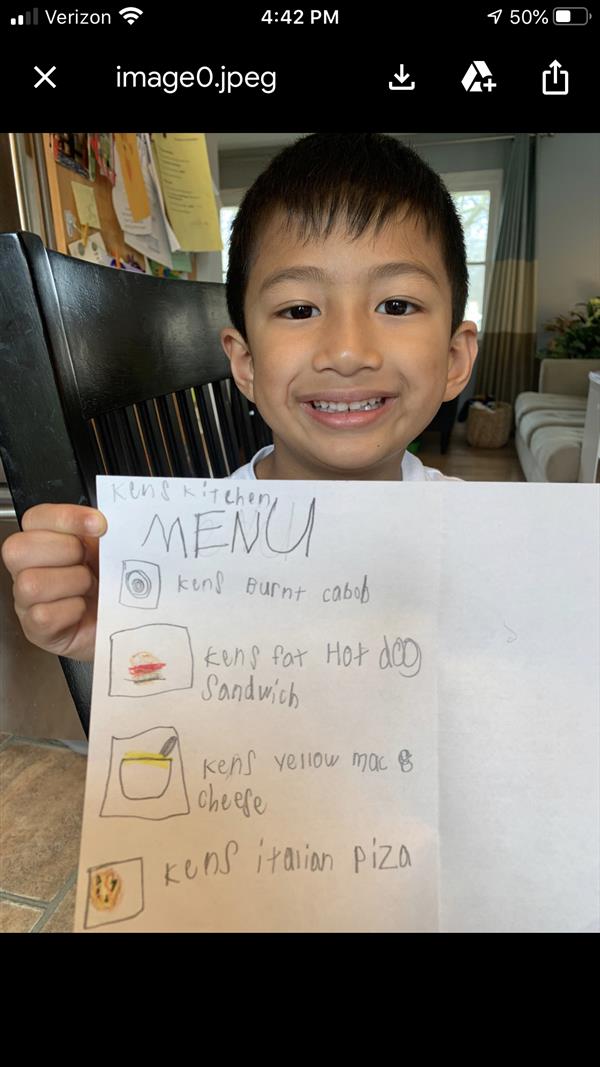 Verizon 4:42 PM 50%
image0.jpeg
Kens Kitchen
MENU
Kens Burnt cabob
Kens fat Hot dog
Sandwich
Kens yellow mac &
cheese
Kens italian piza